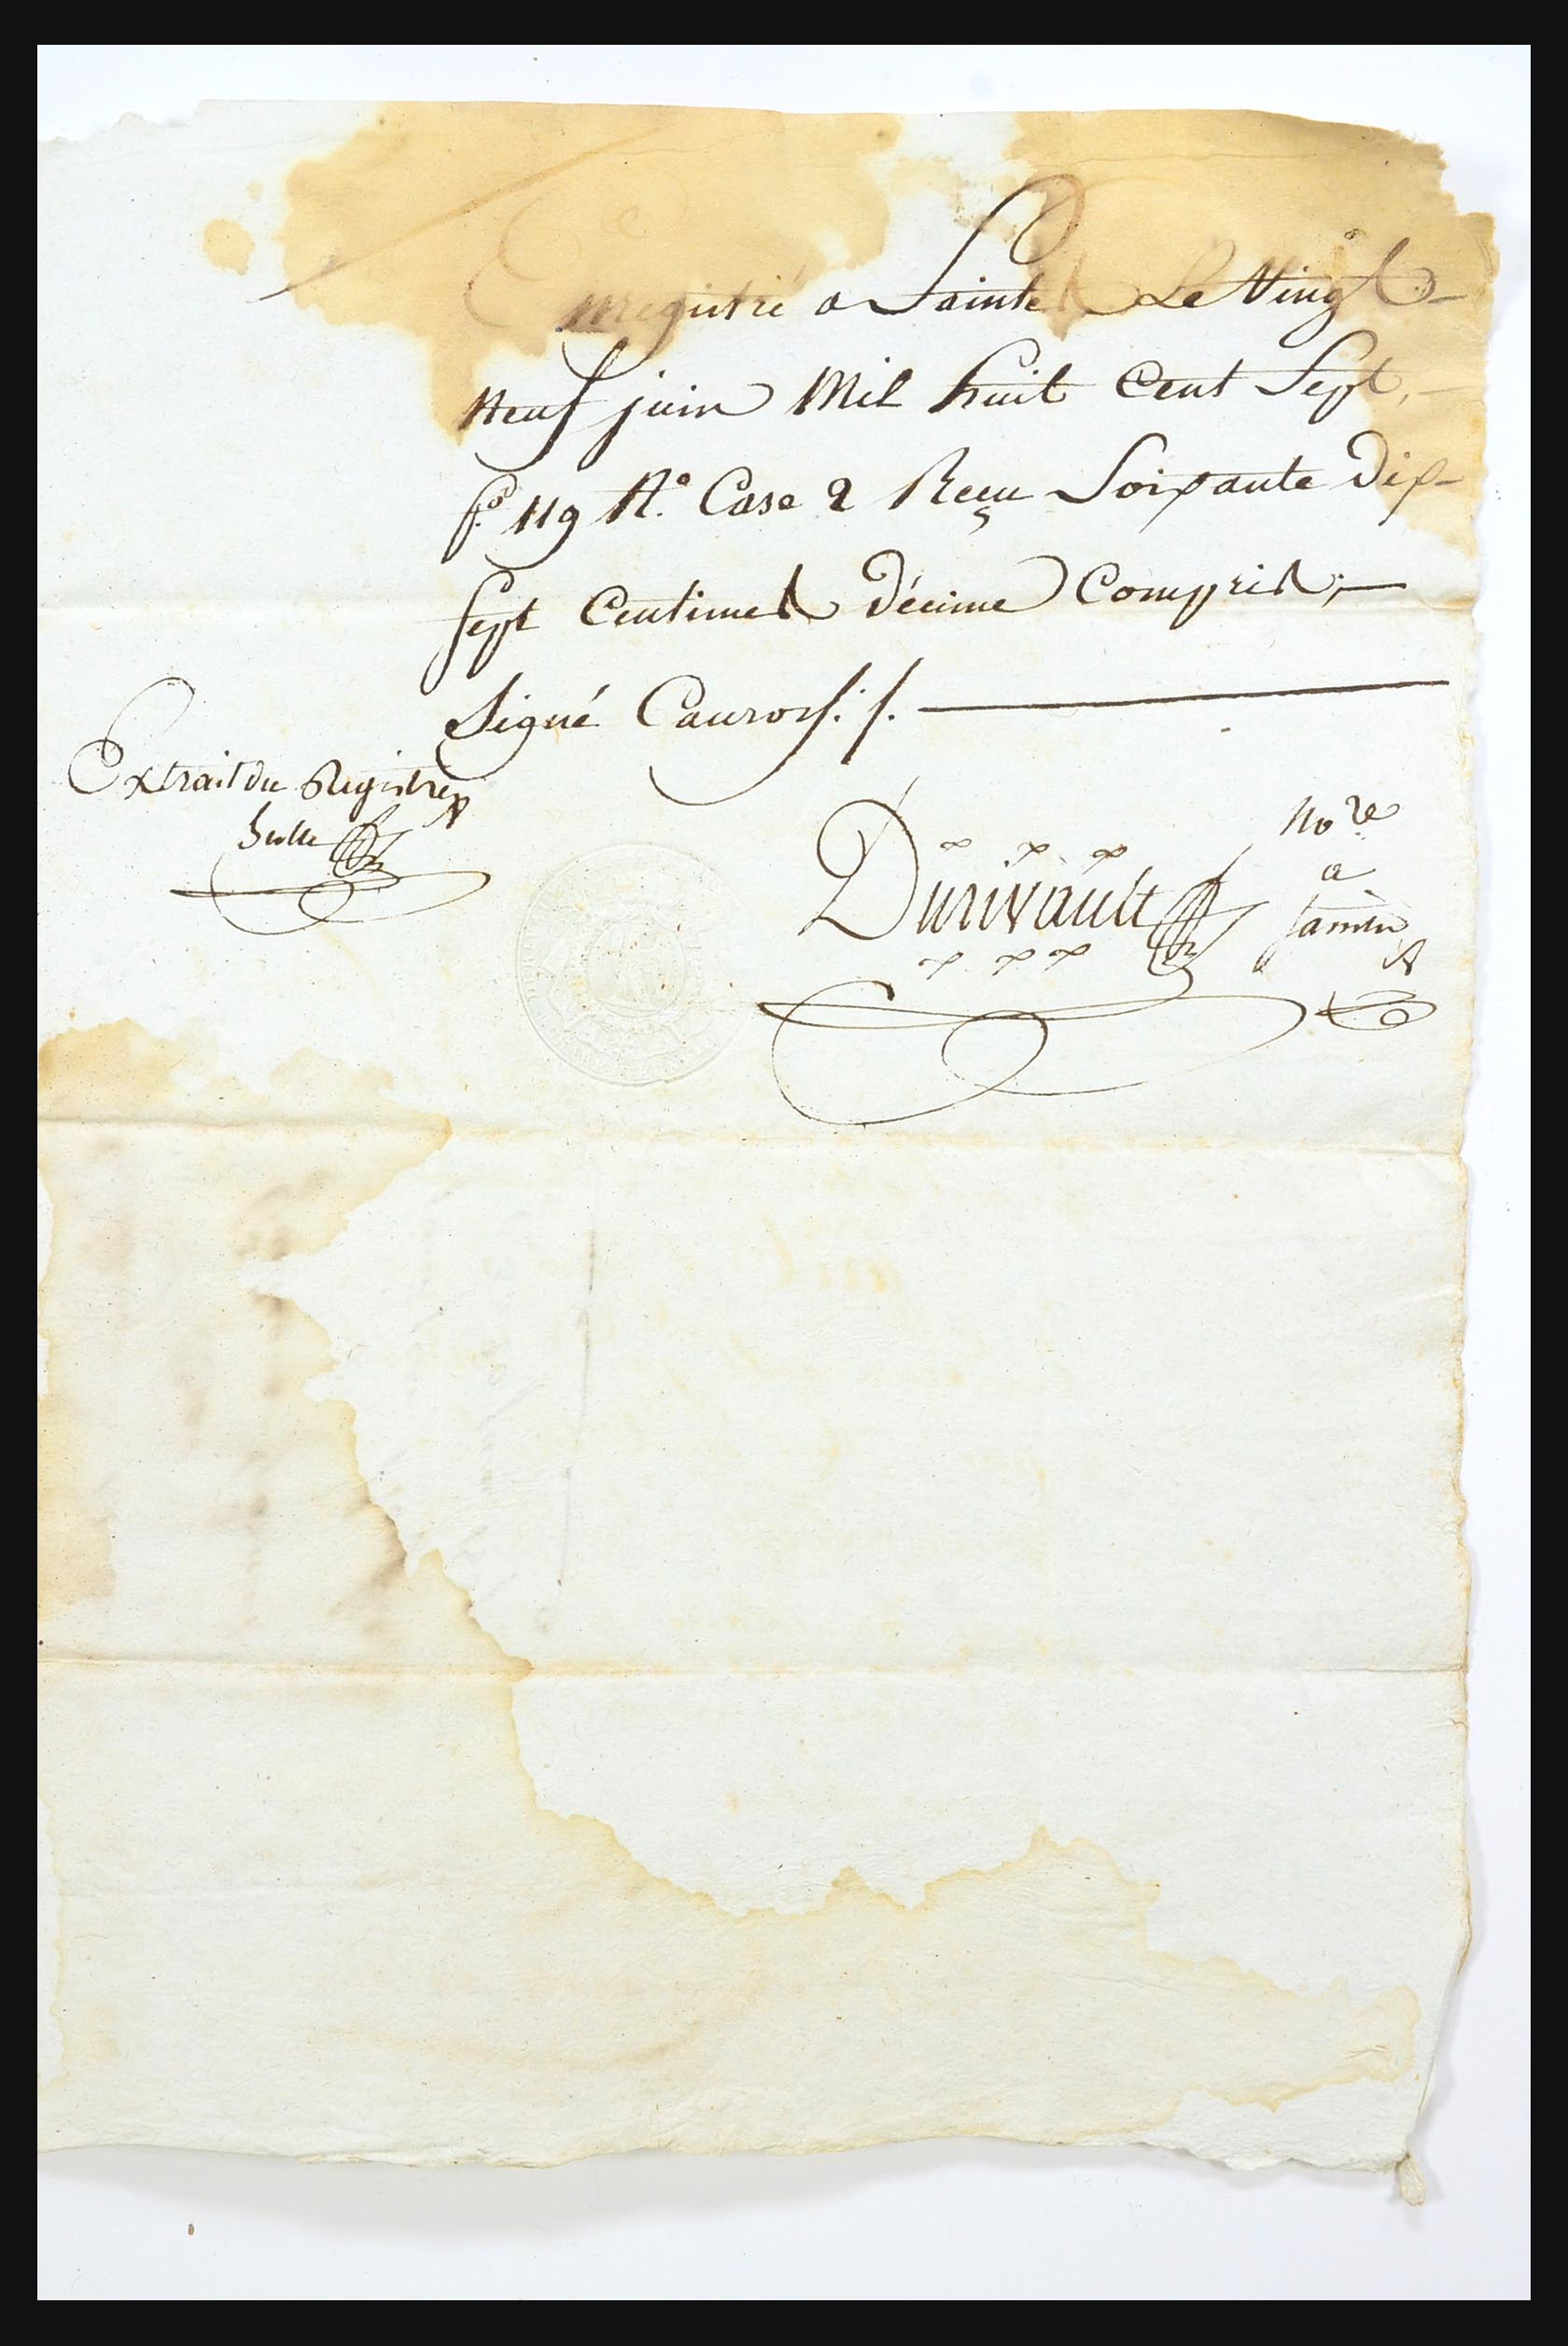 Enregistré a Saintes Le Vingt
neuf juin Mil huit Cent Sept,
f.º 119 Rº. Case 2 Reçu Soixante dix
sept Centimes décime Compris;
signé Cauroy ./.
Extrait du Registre
Nore
Durivault
a